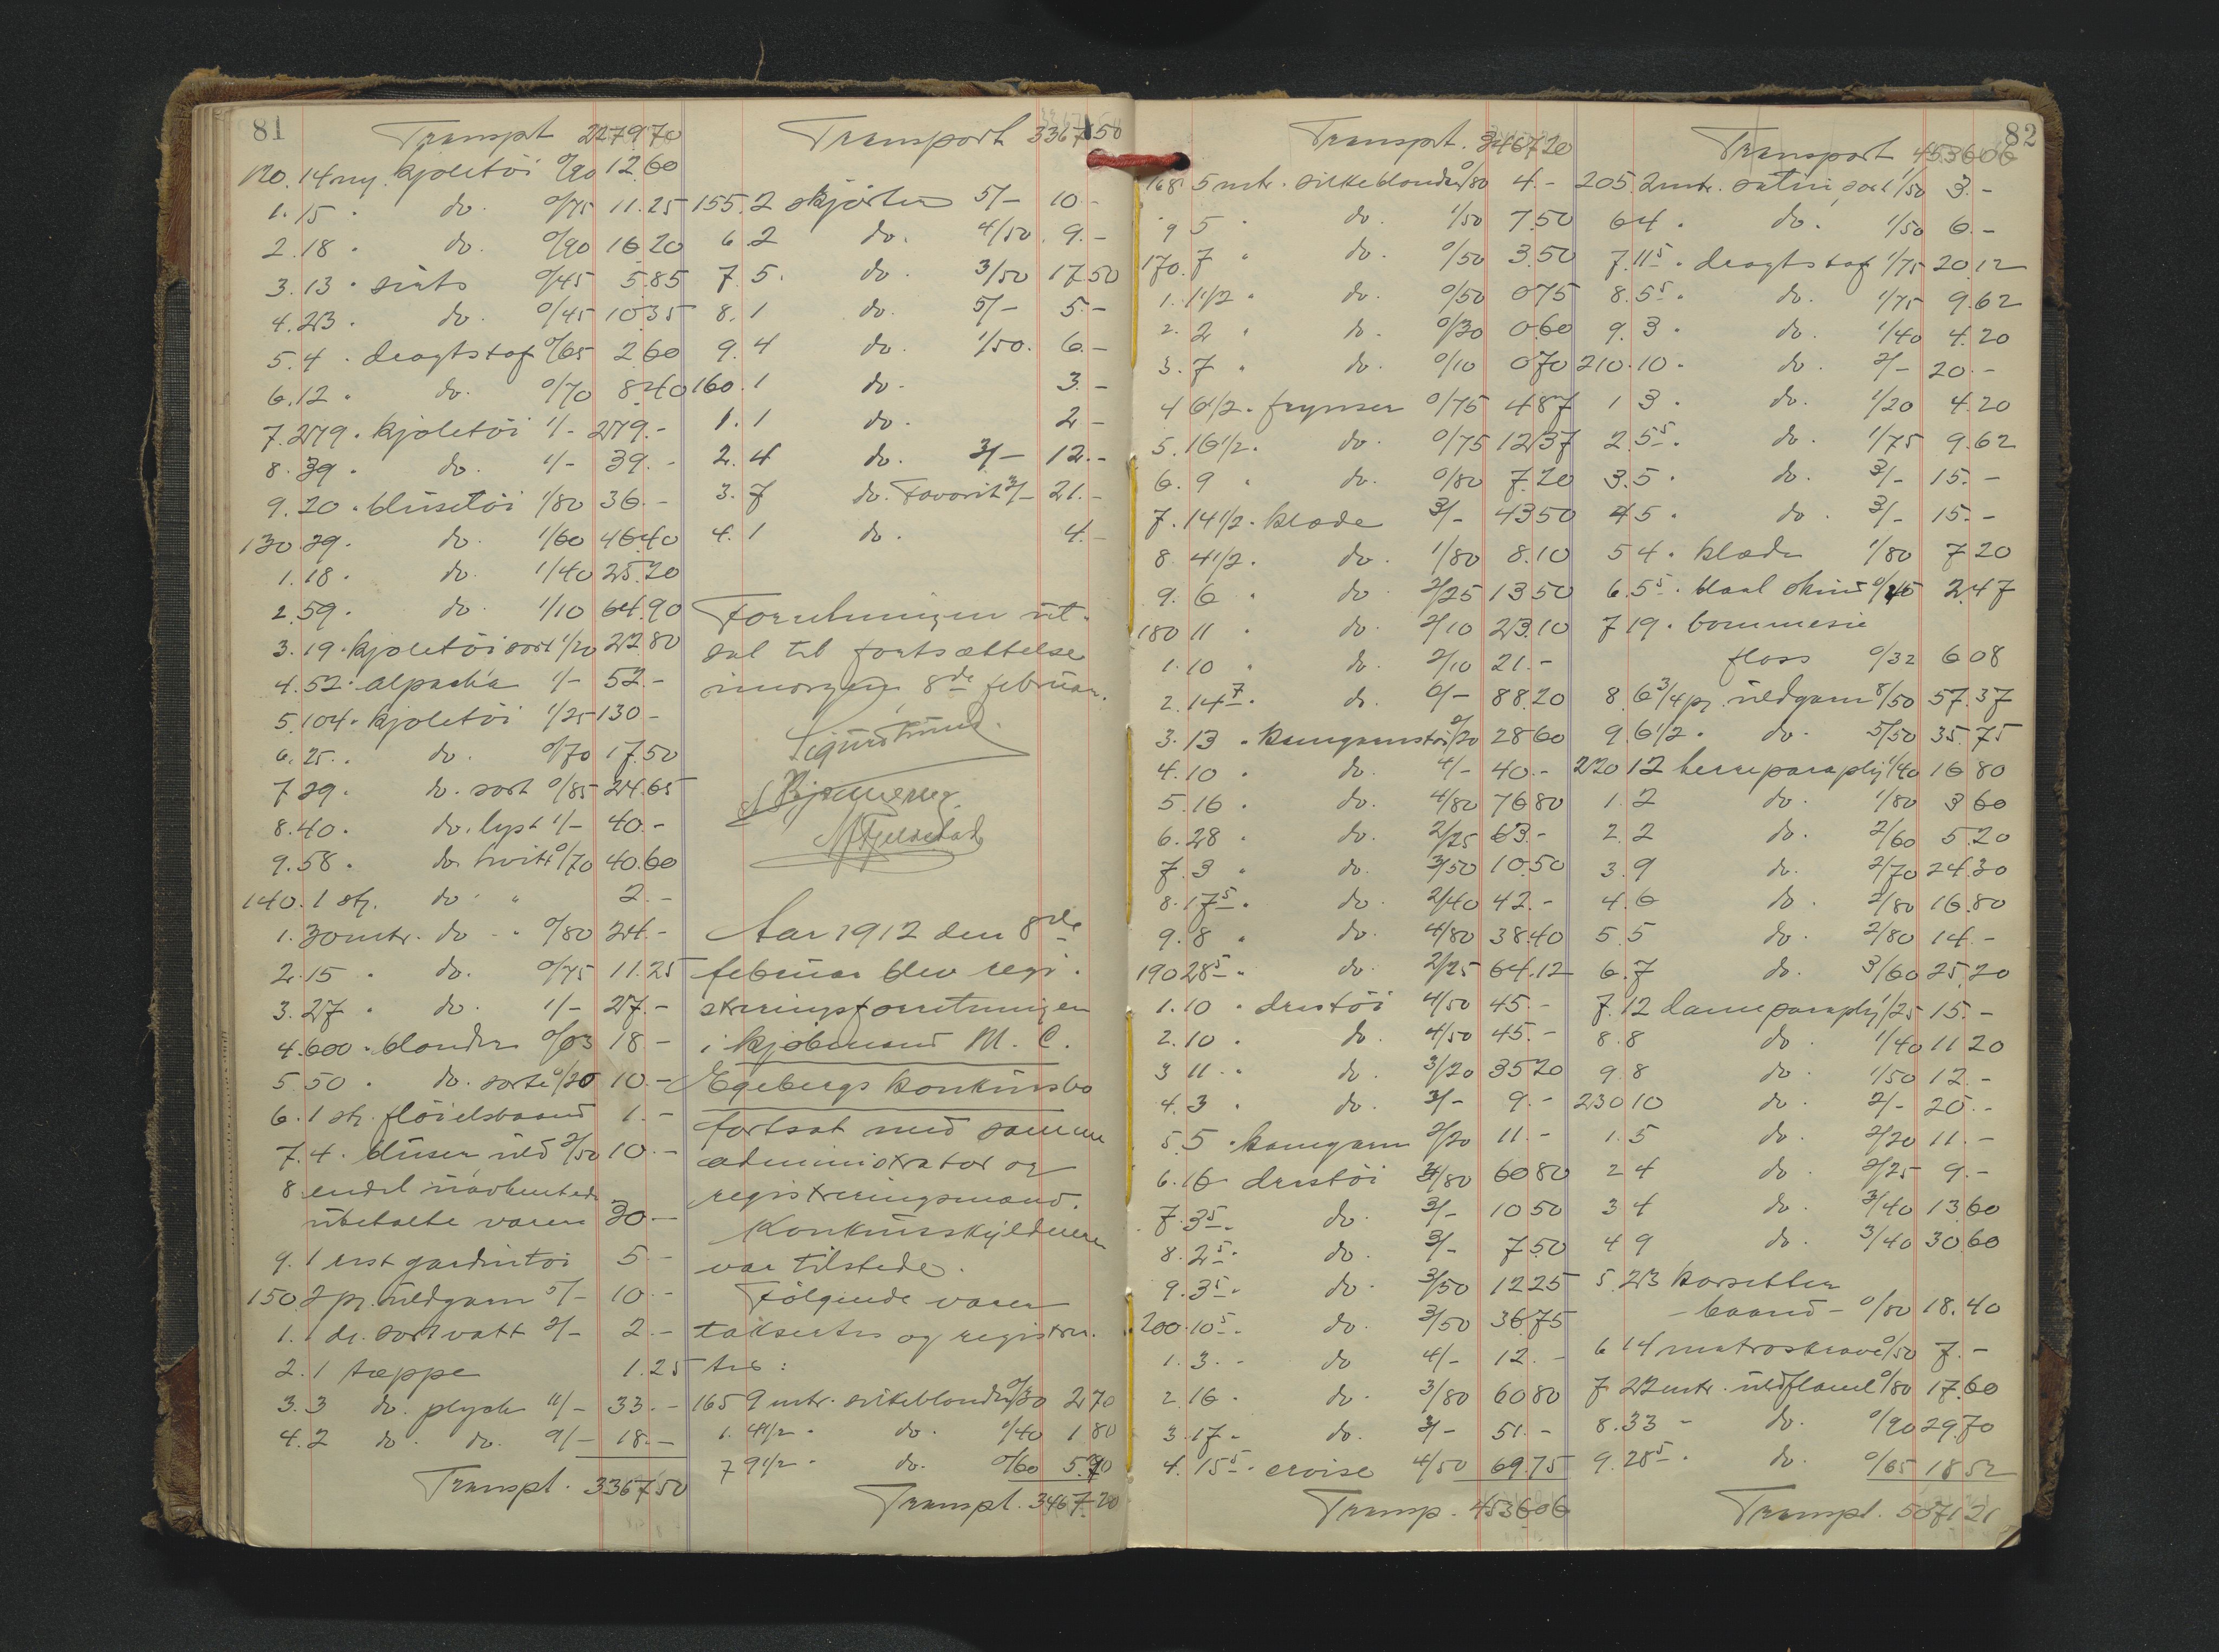 81
Transpt 2279.70
120. 14 my. kjoletöi 0/90 12.60
1. 15 . do. 0/75 11.25
2. 18 . do. 0/90 16.20
3. 13 . sirts 0/45 5.85
4. 23 . do. 0/45 10.35
5. 4 . dragtstof 0/65 2.60
6. 12 . do. 0/70 8.40
7. 279 . kjoletöi 1/- 279.-
8. 39 . do. 1/- 39.-
9. 20 . blusetöi 1/80 36.-
130 29 . do. 1/60 46.40
1. 18 . do. 1/40 25.20
2. 59 . do. 1/10 64.90
3. 19 . kjoletöi sort 1/20 22.80
4. 52 . alpacka 1/- 52.-
5. 104 . kjoletöi 1/25 130.-
6. 25 . do. 0/70 17.50
7. 29 . do. sort 0/85 24.65
8. 40 . do. lyst 1/- 40.-
9. 58 . do. hvitt 0/70 40.60
140. 1 st. do. " 2.-
1. 30 mtr. do " 0/80 24.-
2. 15 . do. 0/75 11.25
3. 27 . do. 1/- 27.-
4. 600 . blonder 0/03 18.-
5. 50 . do. sorte 0/20 10.-
6. 1 st. flöielsbaand 1.-
7. 4 . bluser uld 2/50 10.-
8 endel uavhentede
ubetalte varer 30.-
9. 1 rest gardintöi 5.-
150. 2 pr. uldgarn 5/- 10.-
1. 1 do. sort vatt 2/- 2.-
2. 1 tæppe 1.25
3. 3 do. plysch 11/- 33.-
4. 2 do. do. 9/- 18.-
Transpt. 3367.50
Transport 3367.50
155. 2 skjörter 5/- 10.-
6 2 do. 4/50 9.-
7 5. do. 3/50 17.50
8. 1 do. 5/- 5.-
9. 4 do. 1/50 6.-
160. 1 do. 3.-
1. 1 do. 2.-
2. 4 do. 3/- 12.-
3. 7 do. Favorit 3/- 21.-
4. 1 do. 4.-
Forretningen ut-
sat til fortsættelse
imorgen, 8de februar.
Aar 1912 den 8de
februar blev regi-
streringsforretningen
i kjöbmand M. C.
Egebergs konkursbo
fortsat med samme
administrator og
registreringsmænd.
Konkursskyldneren
var tilstede.
Fölgende varer
taksertes og registrer-
tes:
165 9 mtr. silkeblonder 0/30 2.70
1. 4 1/2 . do. 0/40 1.80
7 9 1/2 . do. 0/60 5.70
Transpt. 3467.20
82
Transpt. 3467.20
168. 5 mtr. silkeblonder 0/80 4.-
9 5 " do. 1/50 7.50
170. 7 " do. 0/50 3.50
1. 1 1/2 . do. 0/50 0.75
2. 2 " do. 0/30 0.60
3. 7 " do. 0/10 0.70
4 6 1/2 . frynser 0/75 4.87
5. 16 1/2 . do. 0/75 12.37
6. 9 " do. 0/80 7.20
7. 14 1/2 . klæde 3/- 43.50
8 4 1/2 . do. 1/80 8.10
9. 6 " do 2/25 13.50
180 11 " do. 2/10 23.10
1. 10 " do. 2/10 21.-
2. 14 7 . do. 6/- 88.20
3. 13 . kamgarnstöi 2/20 28.60
4. 10 . do. 4/- 40.-
5. 16 . do. 4/80 76.80
6. 28 . do. 2/25 63.-
7. 3 " do. 3/50 10.50
8. 17 5 . do. 2/40 42.-
9. 8 " do. 4/80 38.40
190 28 5 . do. 2/25 64.12
1. 10 . drestöi 4/50 45.-
2. 10 . do. 4/50 45.-
3 11 . do. 3/20 35.20
4. 3 . do. 3/- 9.-
5. 5 . kamgarn 2/20 11.-
6. 16 drestöi 3/80 60.80
7. 3 5 . do. 3/- 10.50
8. 2 5 . do. 3/- 7.50
9. 3 5 . do. 3/50 12.25
200. 10 5 . do. 3/50 36.75
1. 3 . do 4/- 12.-
2. 16 . do. 3/80 60.80
3. 17 . do. 3/- 51.-
4. 15 5 . 4/50 69.75
Transp. 4536.06
Transport 4536.06
205. 2 mtr. satin, sort 1/50 3.-
6 4 . do. 1/50 6.-
7. 11 5 . dragtstof 1/75 20.12
8. 5 5 . do. 1/75 9.62
9. 3 . do. 1/40 4.20
210. 10 . do. 2/- 20.-
1 3 . do. 1/20 4.20
2. 5 5 . do. 1/75 9.62
3. 5 . do. 3/- 15.-
4 5 . do. 3/- 15.-
5 4 . klæde 1/80 7.20
6. 5 5 . 0/45 2.47
7 19 . bommesie
floss 0/32 6.08
8. 6 3/4 pr. uldgarn 8/50 57.37
9. 6 1/2 . do. 5/50 35.75
220 12 herreparaply 1/40 16.80
1. 2 do. 1/80 3.60
2. 2 do. 2/60 5.20
3. 9 do. 2/70 24.30
4. 6 do. 2/80 16.80
5 5 do. 2/80 14.-
6. 7 do. 3/60 25.20
7. 12 dameparaply 1/25 15.-
8. 8 do. 1/40 11.20
9. 8 do. 1/50 12.-
230 10 do. 2/- 20.-
1. 5 do. 2/20 11.-
2 4 do. 2/25 9.-
3 4 do. 3/40 13.60
4 9 do. 3/40 30.60
5 23 korsetter
- baand - 0/80 18.40
6 14 matroskrave 0/50 7.-
7. 22 mtr. uldflanel 0/80 17.60
8. 33 - do. 0/90 29.70
9. 28 5 . do. 0/65 18.52
Transpt. 5071.21